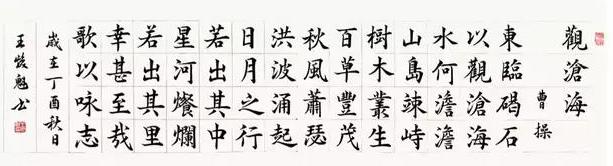 觀滄海
曹操
東臨碣石
以觀滄海
水何澹澹
山島竦峙
樹木叢生
百草豐茂
秋風蕭瑟
洪波涌起
日月之行
若出其中
星河燦爛
若出其里
幸甚至哉
歌以咏志
歲在丁酉秋日
王魁书